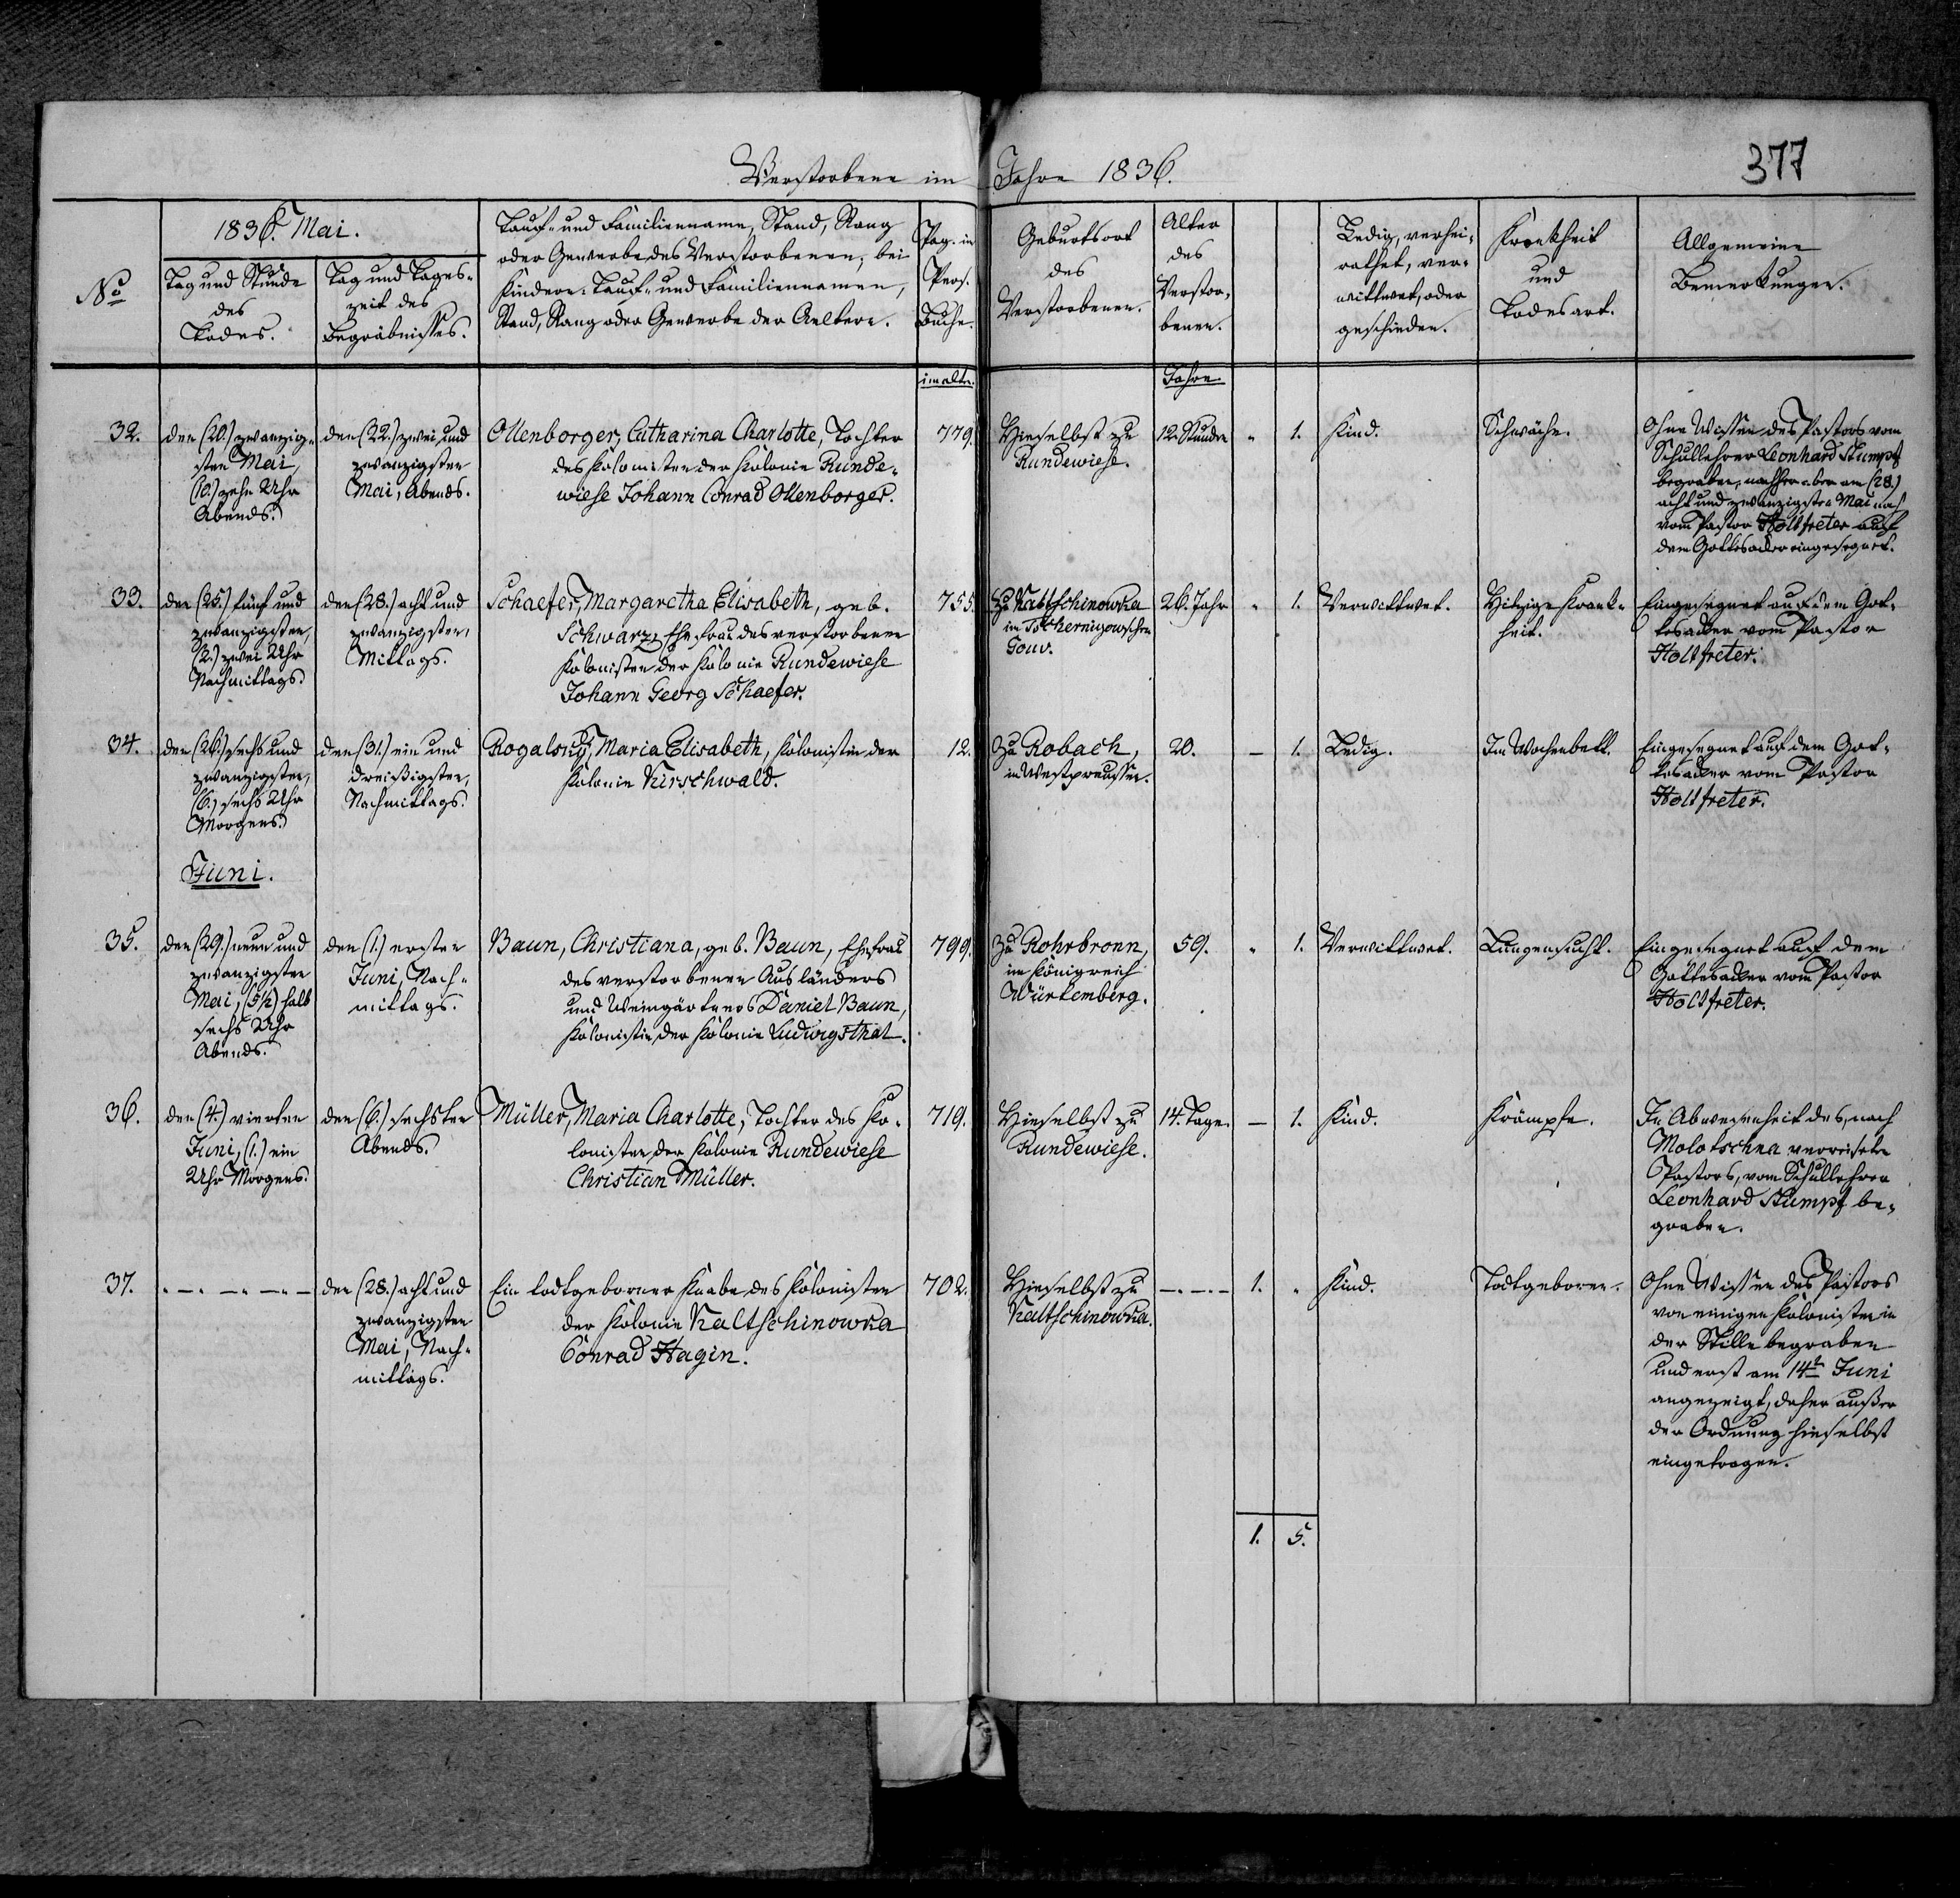 377
Verstorbene im Jahre 1836.
No
1836. Mai.
Tag und Stunde
des
Todes.
Tag und Tages-
zeit des
Begräbnisses.
Tauf- und Familienname, Stand, Rang
oder Gewerbe des Verstorbenen; bei
Kindern: Tauf- und Familiennamen,
Stand, Rang oder Gewerbe der Aeltern.
Pag. im
Pers.
Buche.
Geburtsort
des
Verstorbenen.
Alter
des
Verstor-
benen.
Ledig, verhei-
rathet, ver-
wittwet, oder
geschieden.
Krankheit
und
Todesart.
Allgemeine
Bemerkungen.
im alten.
Jahre.
32.
den (20.) zwanzig-
sten Mai,
(10.) zehn Uhr
Abends.
den (22.) zwei und
zwanzigsten
Mai, Abends.
Ollenborger, Catharina Charlotte, Tochter
des Kolonisten der Kolonie Runde-
wiese Johann Conrad Ollenborger.
779.
Hieselbst zu
Rundewiese.
12. Stunden
" 1.
Kind.
Schwäche.
Ohne Wissen des Pastors vom
Schullehrer Leonhard Stumpf
begraben, nachher aber am (28.)
acht und zwanzigsten Mai noch
vom Pastor Holtfreter auf
dem Gottesacker eingesegnet.
33.
den (25.) fünf und
zwanzigsten,
(2.) zwei Uhr
Nachmittags.
den (28.) acht und
zwanzigsten,
Mittags.
Schaefer, Margaretha Elisabeth, geb.
Schwarz, Ehefrau des verstorbenen
Kolonisten der Kolonie Rundewiese
Johann Georg Schaefer.
755.
Zu Kaltschinowka
im Tschernigowschen
Gouv.
26. Jahr
" 1.
Verwittwet.
Hitzige Krank-
heit.
Eingesegnet auf dem Got-
tesacker vom Pastor
Holtfreter.
34.
den (26.) sechs und
zwanzigsten,
(6.) sechs Uhr
Morgens.
den (31.) ein und
dreißigsten,
Nachmittags.
Rogalsky, Maria Elisabeth, Kolonistin der
Kolonie Kirschwald.
12.
Zu Robach,
in Westpreussen.
20.
— 1.
Ledig.
Im Wochenbett.
Eingesegnet auf dem Got-
tesacker vom Pastor
Holtfreter.
Juni.
35.
den (29.) neun und
zwanzigsten
Mai, (5½) halb
sechs Uhr
Abends.
den (1.) ersten
Juni, Nach-
mittags.
Baun, Christiana, geb. Baun, Ehefrau
des verstorbenen Ausländers
und Weingärtners Daniel Baun,
Kolonistin der Kolonie Ludwigsthal.
799.
Zu Rohrbronn,
im Königreich
Würtemberg.
59.
" 1.
Verwittwet.
Lungensucht.
Eingesegnet auf dem
Gottesacker vom Pastor
Holtfreter.
36.
den (4.) vierten
Juni, (1.) ein
Uhr Morgens.
den (6.) sechsten
Abends.
Müller, Maria Charlotte, Tochter des Ko-
lonisten der Kolonie Rundewiese
Christian Müller.
719.
Hieselbst zu
Rundewiese.
14. Tage.
— 1.
Kind.
Krämpfe.
In Abwesenheit des, nach
Molotschna verreisten
Pastors, vom Schullehrer
Leonhard Stumpf be-
graben.
37.
—.—.—.—
den (28.) acht und
zwanzigsten
Mai, Nach-
mittags.
Ein todtgeborner Knabe des Kolonisten
der Kolonie Kaltschinowka
Conrad Hagin.
702.
Hieselbst zu
Kaltschinowka.
—.—.—
1. "
Kind.
Todtgeboren.
Ohne Wissen des Pastors
von einigen Kolonisten in
der Stille begraben
und erst am 14t Juni
angezeigt, daher außer
der Ordnung hieselbst
eingetragen.
1. 5.